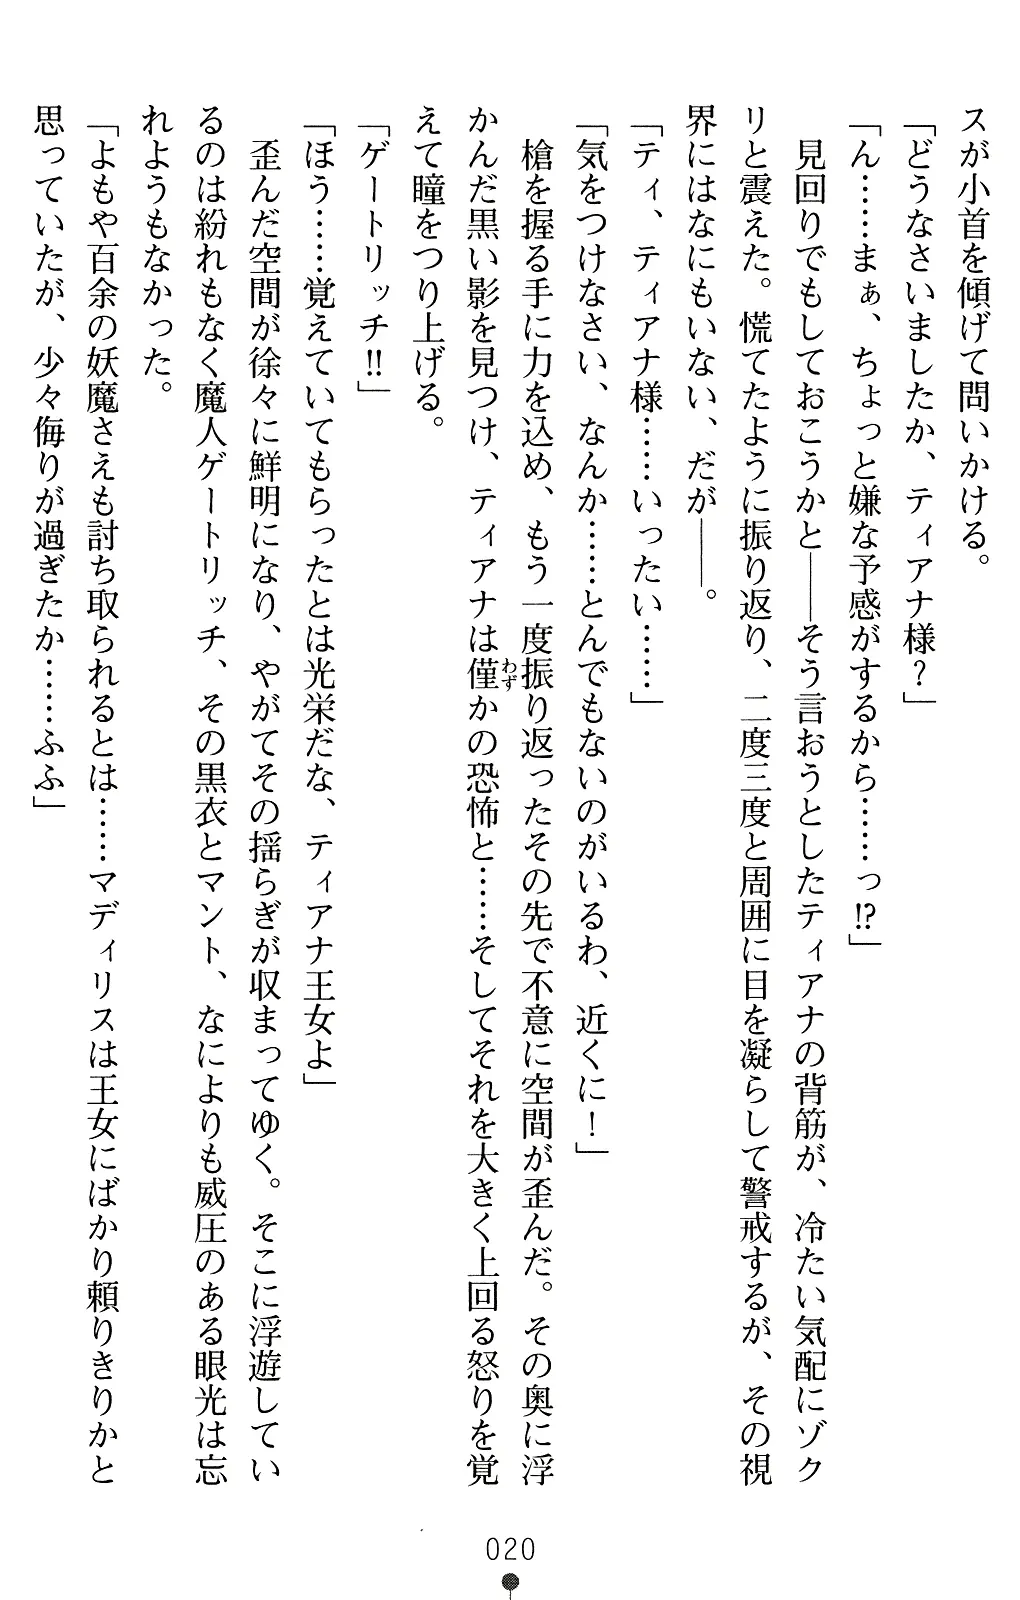 スが小首を傾げて問いかける。
「どうなさいましたか、ティアナ様？」
「ん……まぁ、ちょっと嫌な予感がするから……っ!?」
　見回りでもしておこうかと――そう言おうとしたティアナの背筋が、冷たい気配にゾク
リと震えた。慌てたように振り返り、二度三度と周囲に目を凝らして警戒するが、その視
界にはなにもいない、だが――。
「ティ、ティアナ様……いったい……」
「気をつけなさい、なんか……とんでもないのがいるわ、近くに！」
　槍を握る手に力を込め、もう一度振り返ったその先で不意に空間が歪んだ。その奥に浮
かんだ黒い影を見つけ、ティアナは僅わずかの恐怖と……そしてそれを大きく上回る怒りを覚
えて瞳をつり上げる。
「ゲートリッチ!!」
「ほう……覚えていてもらったとは光栄だな、ティアナ王女よ」
　歪んだ空間が徐々に鮮明になり、やがてその揺らぎが収まってゆく。そこに浮遊してい
るのは紛れもなく魔人ゲートリッチ、その黒衣とマント、なによりも威圧のある眼光は忘
れようもなかった。
「よもや百余の妖魔さえも討ち取られるとは……マディリスは王女にばかり頼りきりかと
思っていたが、少々侮りが過ぎたか……ふふ」
020